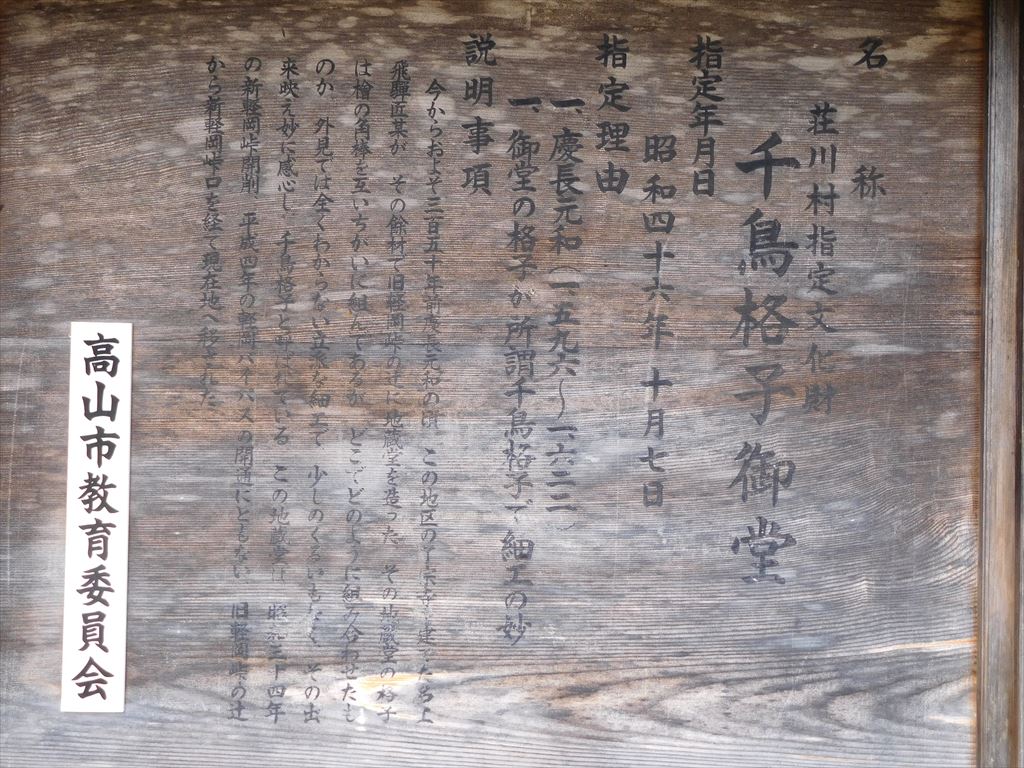 名称
荘川村指定文化財
千鳥格子御堂
指定年月日
昭和四十六年 十月七日
指定理由
一、慶長元和(一、五九六〜一、六二二)
一、御堂の格子が所謂千鳥格子で細工の妙
説明事項
今からおよそ三百五十年前慶長元和の頃 この地区の了宗寺を建てた名工
飛騨匠某が その餘材で旧軽岡峠の辻に地蔵堂を造った その地蔵堂の格子
は檜の角棒を互いちがいに組んであるが どこでどのように組み合わせたも
のか 外見では全くわからない立派な細工で 少しのくるいもなく その出
来映え妙に感心し 千鳥格子と呼ばれている この地蔵堂は 昭和三十四年
の新軽岡峠開削 平成四年の軽岡バイパスの開通にともない 旧軽岡峠の辻
から新軽岡峠口を経て現在地へ移された
高山市教育委員会